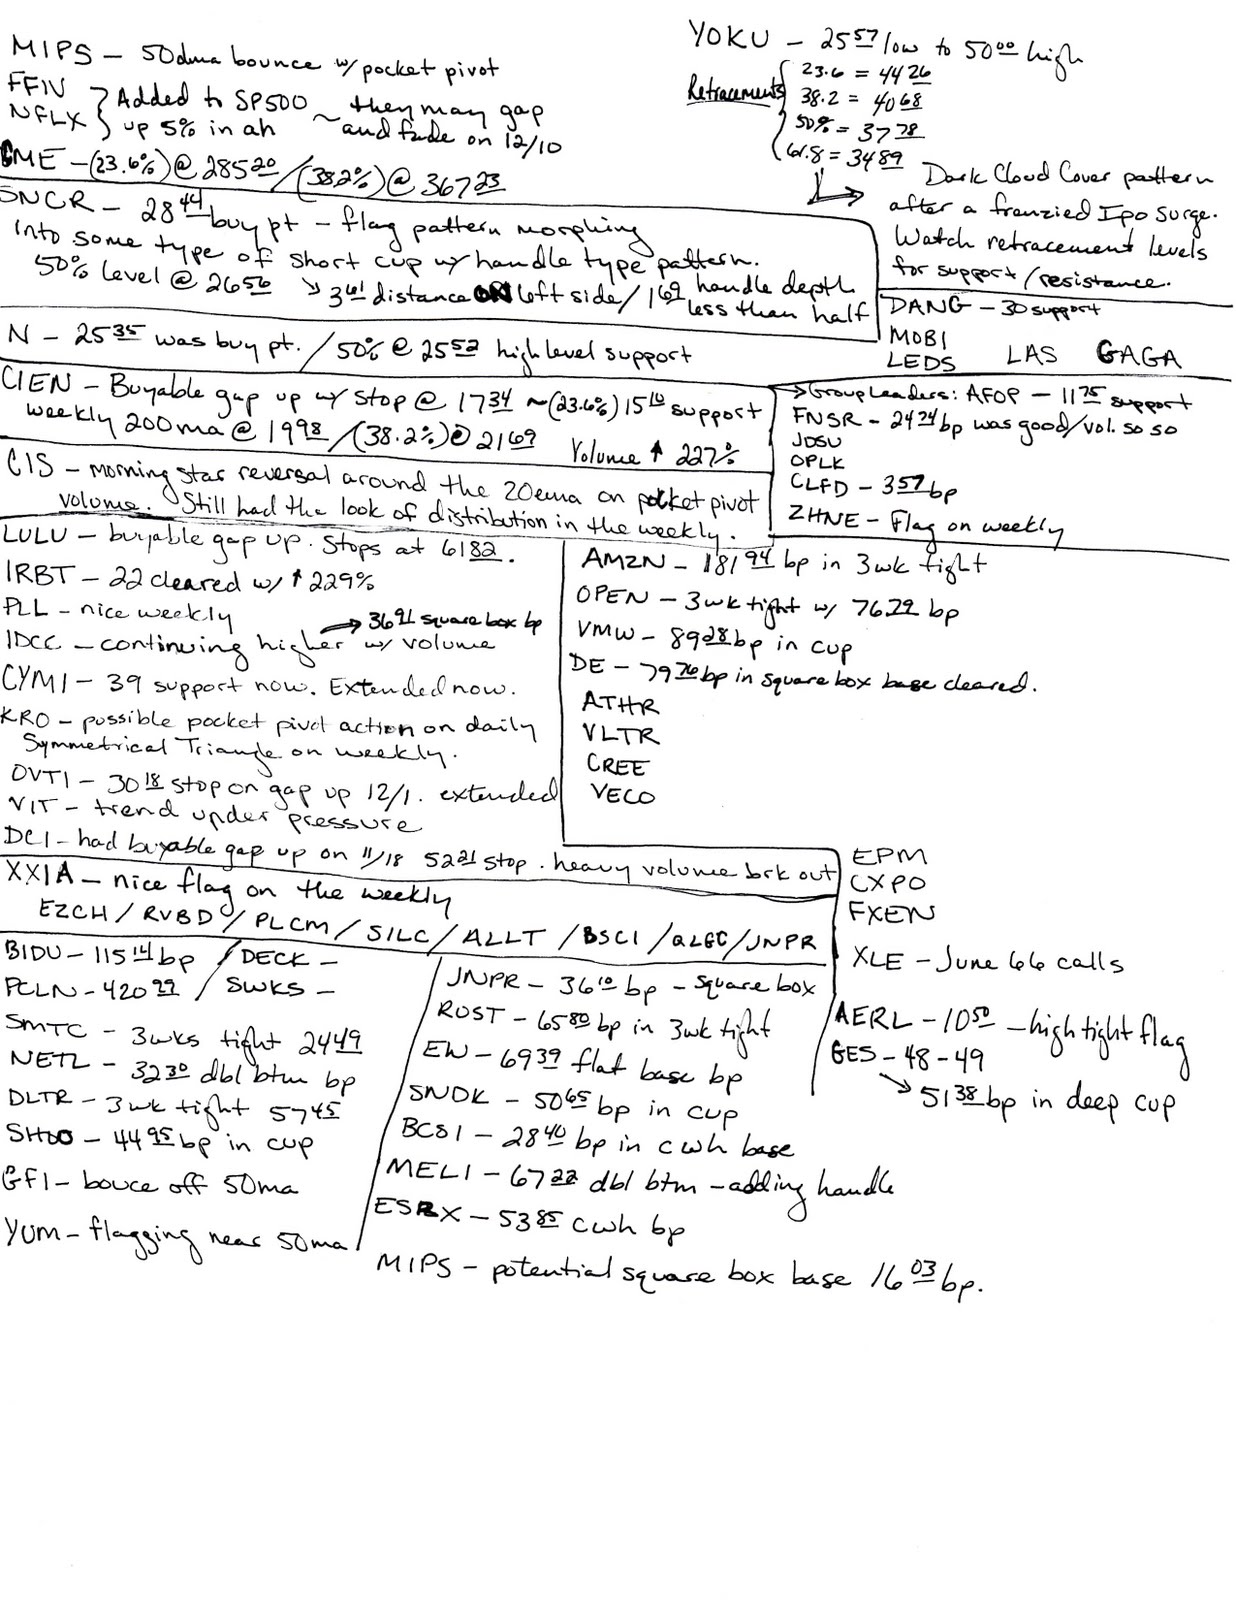 MIPS - 50dma bounce w/ pocket pivot
FFIV
NFLX } Added to SP500 ~ they may gap
up 5% in ah and fade on 12/10
CME - (23.6%) @ 285 20 / (38.2%) @ 367 23
YOKU - 25 57 low to 50 00 high
Retracements { 23.6 = 44 26
38.2 = 40 68
50% = 37 78
61.8 = 34 89
→ Dark Cloud Cover pattern
after a frenzied Ipo surge.
Watch retracement levels
for support/resistance.
SNCR - 28 44 buy pt - flag pattern morphing
into some type of short cup w/ handle type pattern.
50% level @ 26 56 ↘ 3 61 distance ON left side / 1 69 handle depth
less than half
DANG - 30 support
MOBI
LEDS LAS GAGA
N - 25 35 was buy pt. / 50% @ 25 52 high level support
CIEN - Buyable gap up w/ stop @ 17 34 ~ (23.6%) 15 10 support
weekly 200ma @ 19 98 / (38.2%) @ 21 69 Volume ↑ 227%
→ Group Leaders: AFOP - 11 75 support
FNSR - 24 24 bp was good/vol. so so
JDSU
OPLK
CLFD - 3 57 bp
ZHNE - Flag on weekly
CIS - morning star reversal around the 20ema on pocket pivot
volume. Still had the look of distribution in the weekly.
LULU - buyable gap up. Stops at 61 82.
IRBT - 22 cleared w/ ↑ 229%
PLL - nice weekly
→ 36 91 square box bp
IDCC - continuing higher w/ volume
CYMI - 39 support now. Extended now.
KRO - possible pocket pivot action on daily
Symmetrical Triangle on weekly.
OVTI - 30 18 stop on gap up 12/1. extended
VIT - trend under pressure
DCI - had buyable gap up on 11/18 52 21 stop. heavy volume brk out
AMZN - 181 94 bp in 3wk tight
OPEN - 3wk tight w/ 76 22 bp
VMW - 89 28 bp in cup
DE - 79 76 bp in square box base cleared.
ATHR
VLTR
CREE
VECO
XXIA - nice flag on the weekly
EZCH / RVBD / PLCM / SILC / ALLT / BSCI / QLGC / JNPR
EPM
CXPO
FXEN
XLE - June 66 calls
AERL - 10 50 - high tight flag
GES - 48 - 49
↘ 51 38 bp in deep cup
BIDU - 115 14 bp / DECK -
PCLN - 420 99 / SWKS -
SMTC - 3wks tight 24 49
NETL - 32 30 dbl btm bp
DLTR - 3wk tight 57 45
SHOO - 44 95 bp in cup
GFI - bouce off 50ma
YUM - flagging near 50ma
JNPR - 36 10 bp - Square box
ROST - 65 80 bp in 3wk tight
EW - 69 39 flat base bp
SNDK - 50 65 bp in cup
BCSI - 28 40 bp in cwh base
MELI - 67 22 dbl btm - adding handle
ESRX - 53 85 cwh bp
MIPS - potential square box base 16 03 bp.